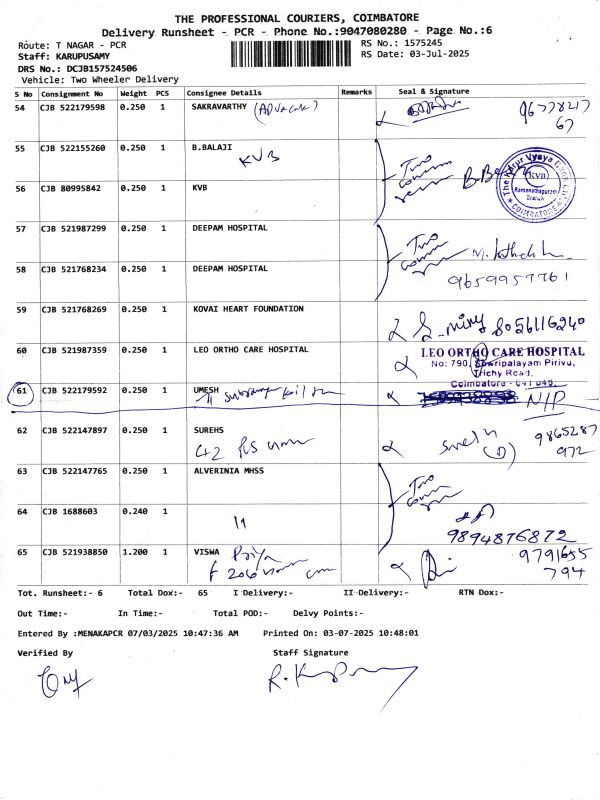 THE PROFESSIONAL COURIERS, COIMBATORE
Delivery Runsheet - PCR - Phone No.:9047080280 - Page No.:6
Route: T NAGAR - PCR
RS No.: 1575245
Staff: KARUPUSAMY
RS Date: 03-Jul-2025
DRS No.: DCJB157524506
Vehicle: Two Wheeler Delivery
S No Consignment No Weight PCS Consignee Details Remarks Seal & Signature
54 CJB 522179598 0.250 1 SAKRAVARTHY (Advocate) 9677821767
55 CJB 522155260 0.250 1 B.BALAJI
KVB
Two
56 CJB 80995842 0.250 1 KVB
The Karur Vysya Bank Ltd
KVB
Ramanathapuram
Branch
COIMBATORE
57 CJB 521987299 0.250 1 DEEPAM HOSPITAL
Two
58 CJB 521768234 0.250 1 DEEPAM HOSPITAL
9659957761
59 CJB 521768269 0.250 1 KOVAI HEART FOUNDATION
8056116240
60 CJB 521987359 0.250 1 LEO ORTHO CARE HOSPITAL
LEO ORTHO CARE HOSPITAL
No: 790, Sowripalayam Pirivu,
Trichy Road,
Coimbatore - 641 045.
61 CJB 522179592 0.250 1 UMESH
N/P
62 CJB 522147897 0.250 1 SUREHS
9865287
972
63 CJB 522147765 0.250 1 ALVERINIA MHSS
Two
64 CJB 1688603 0.240 1 "
9894876872
65 CJB 521938850 1.200 1 VISWA Priya
9791655
794
Tot. Runsheet:- 6 Total Dox:- 65 I Delivery:- II Delivery:- RTN Dox:-
Out Time:- In Time:- Total POD:- Delvy Points:-
Entered By :MENAKAPCR 07/03/2025 10:47:36 AM Printed On: 03-07-2025 10:48:01
Verified By Staff Signature